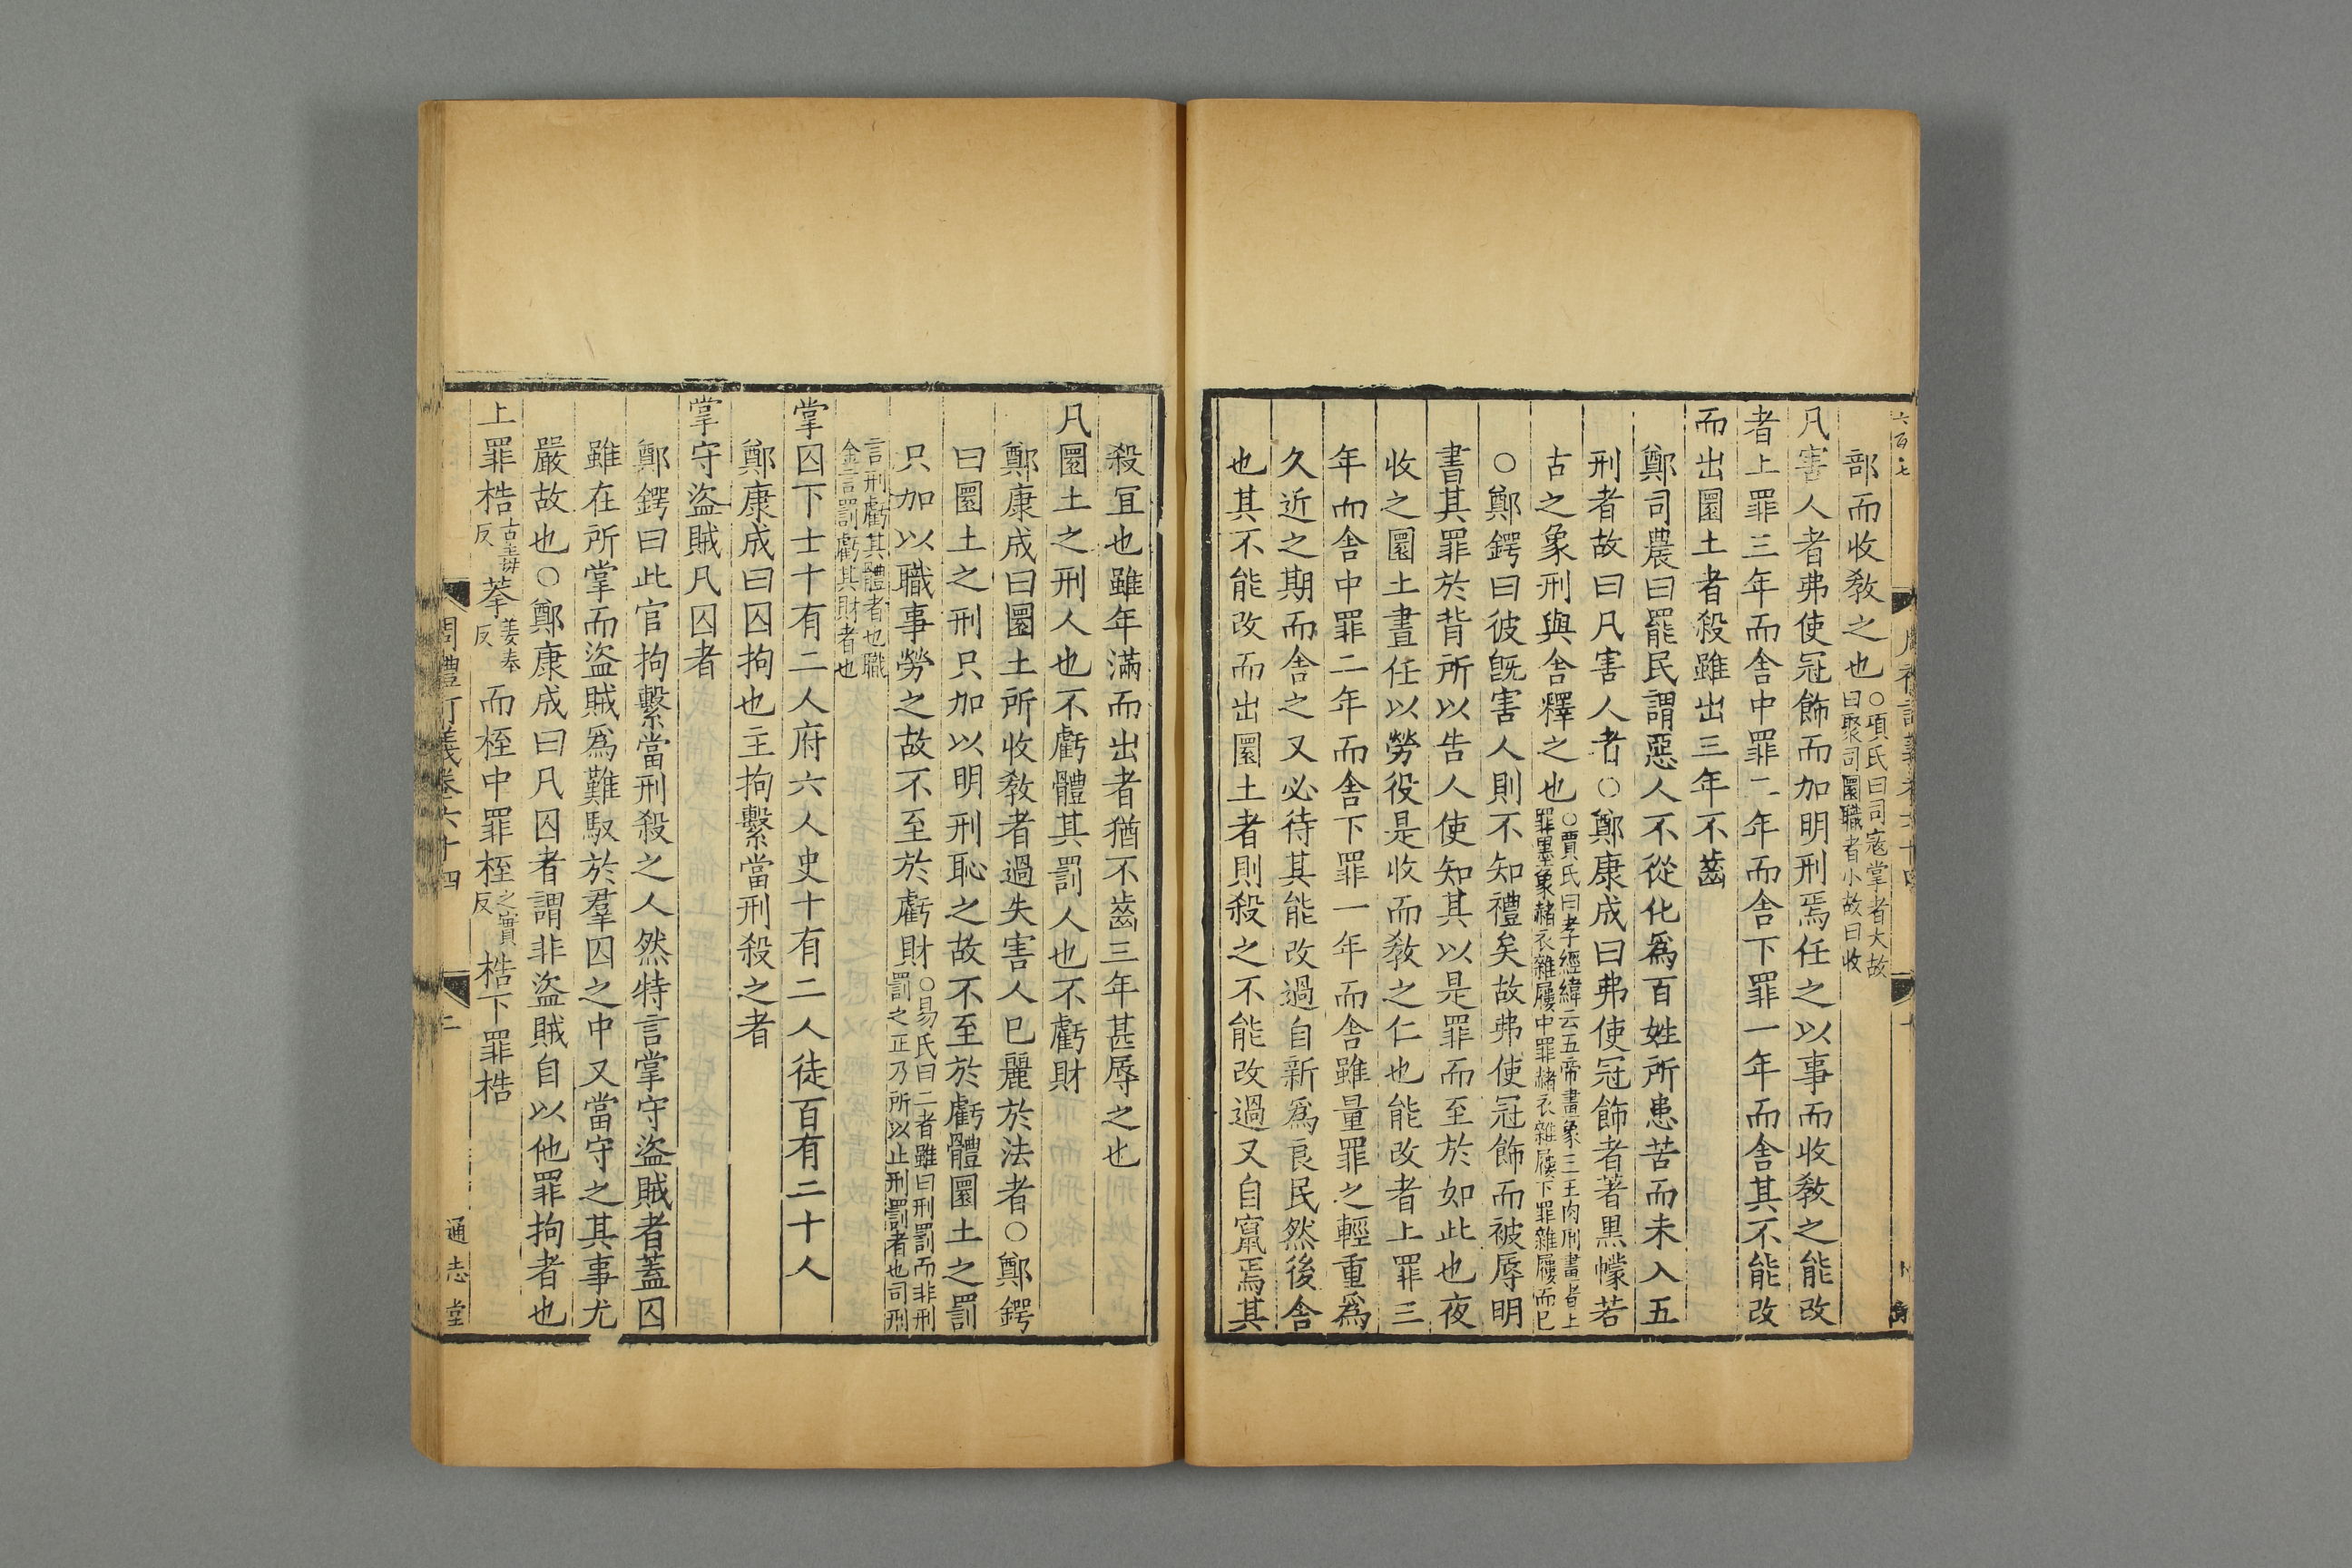 六百七
部而收敎之也○項氏曰司寇掌者大故曰聚司圜職者小故曰收
凡害人者弗使冠飾而加明刑焉任之以事而收敎之能改
者上罪三年而舍中罪二年而舍下罪一年而舍其不能改
而出圜土者殺雖出三年不齒
鄭司農曰罷民謂惡人不從化爲百姓所患苦而未入五
刑者故曰凡害人者○鄭康成曰弗使冠飾者著黑幪若
古之象刑與舍釋之也○賈氏曰孝經緯云五帝畫象三王肉刑畫者上罪墨象赭衣雜屨中罪赭衣雜屨下罪雜屨而已
○鄭鍔曰彼旣害人則不知禮矣故弗使冠飾而被辱明
書其罪於背所以告人使知其以是罪而至於如此也夜
收之圜土晝任以勞役是收而敎之仁也能改者上罪三
年而舍中罪二年而舍下罪一年而舍雖量罪之輕重爲
久近之期而舍之又必待其能改過自新爲良民然後舍
也其不能改而出圜土者則殺之不能改過又自竄焉其
殺宜也雖年滿而出者猶不齒三年甚辱之也
凡圜土之刑人也不虧體其罰人也不虧財
鄭康成曰圜土所收敎者過失害人已麗於法者○鄭鍔
曰圜土之刑只加以明刑恥之故不至於虧體圜土之罰
只加以職事勞之故不至於虧財○易氏曰二者雖曰刑罰而非刑罰之正乃所以止刑罰者也司刑
言刑虧其體者也職金言罰虧其財者也
掌囚下士十有二人府六人史十有二人徒百有二十人
鄭康成曰囚拘也主拘繫當刑殺之者
掌守盜賊凡囚者
鄭鍔曰此官拘繫當刑殺之人然特言掌守盜賊者蓋囚
雖在所掌而盜賊爲難馭於羣囚之中又當守之其事尤
嚴故也○鄭康成曰凡囚者謂非盜賊自以他罪拘者也
上罪梏古毒反拲姜奉反而桎中罪桎之實反梏下罪梏
周禮訂義卷六十四
二
通志堂